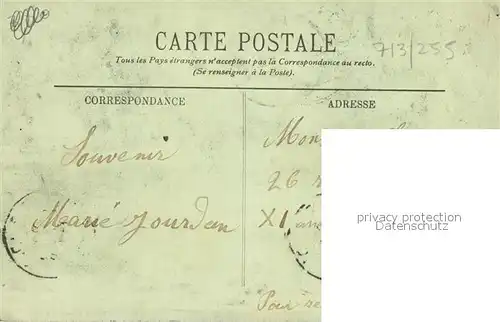 CARTE POSTALE
7/3/255
Tous les Pays étrangers n'acceptent pas la Correspondance au recto.
(Se renseigner à la Poste).
CORRESPONDANCE
ADRESSE
Souvenir
Marie Jourdan
26
XI
privacy protection
Datenschutz